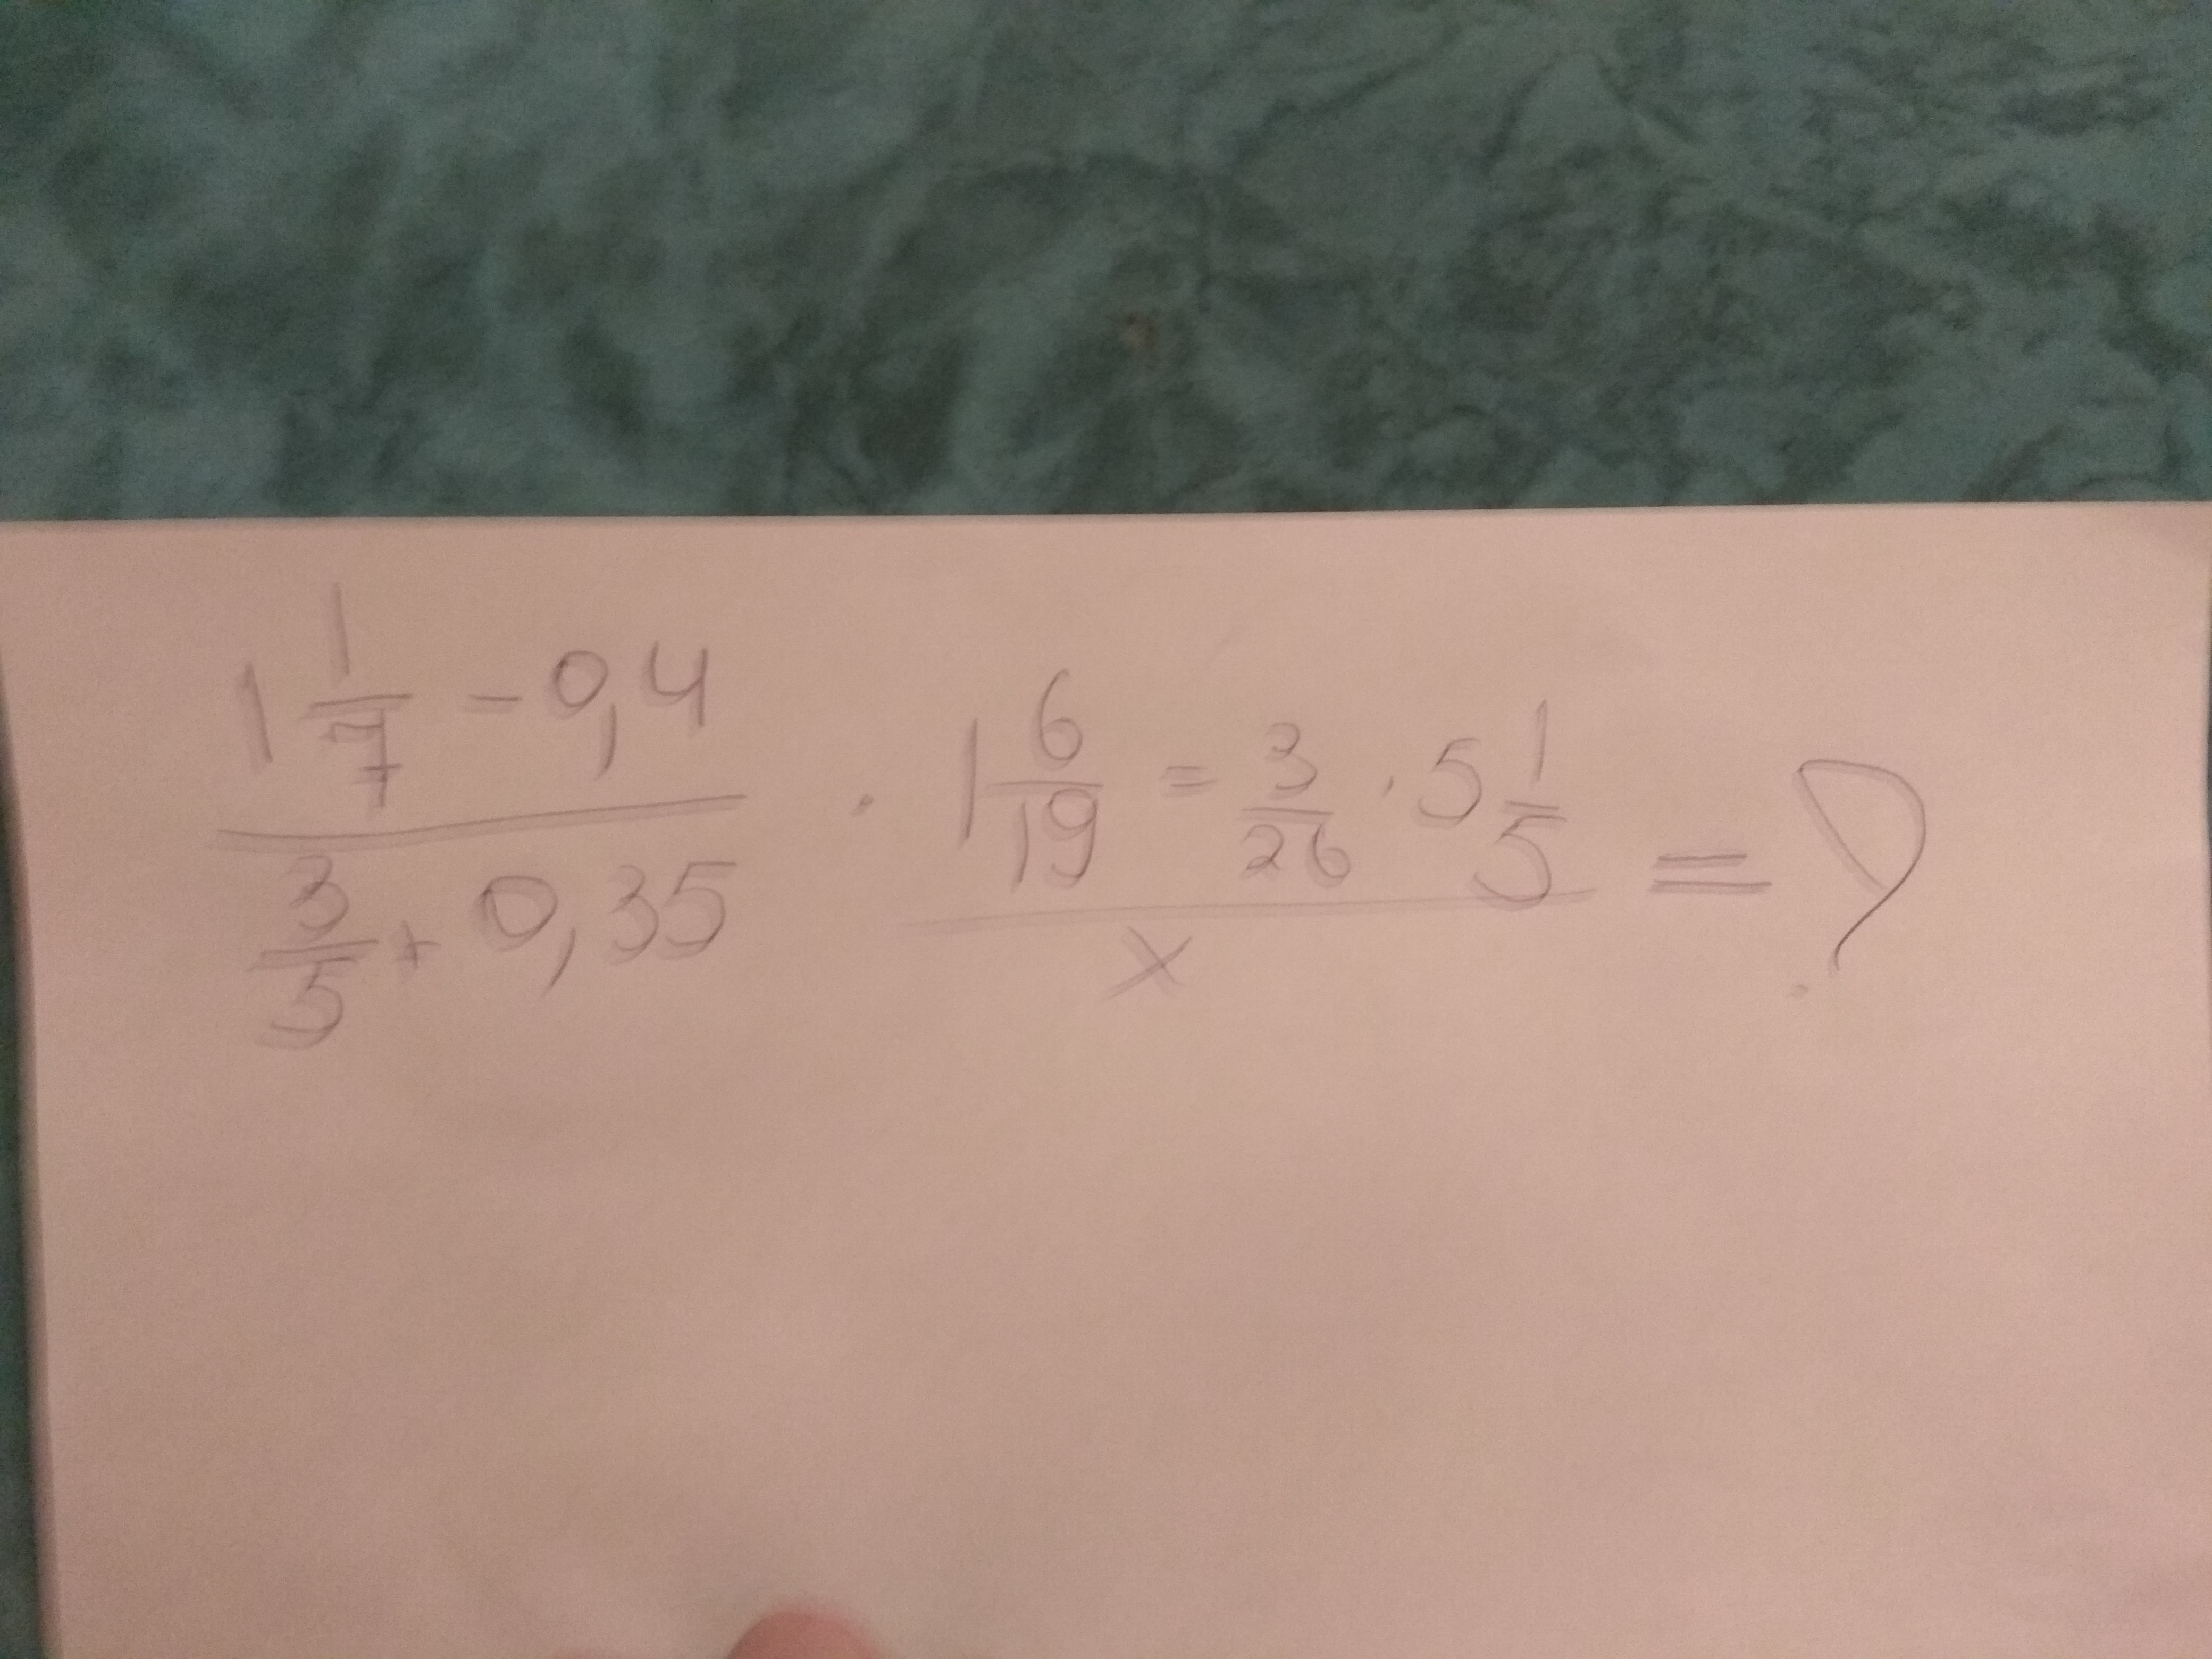 (1 1/7 - 0,4) / (3/5 + 0,35) · (1 6/19 = 3/26 · 5 1/5) / x = ?